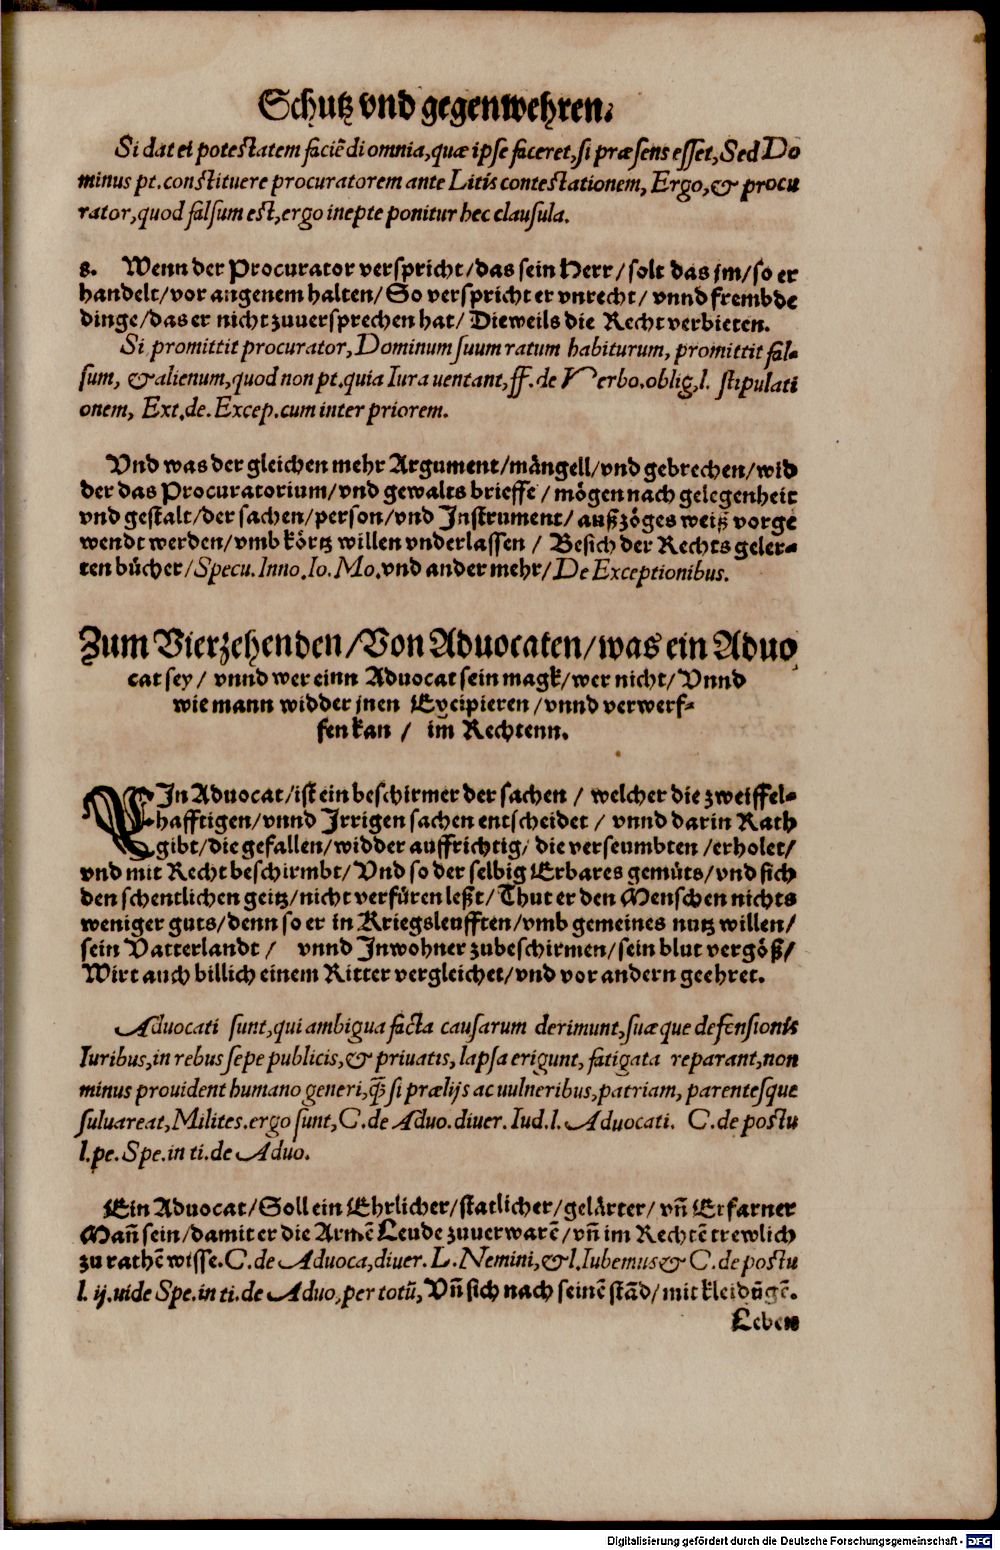 Schutz vnd gegenwehren.
Si dat ei potestatem faciēdi omnia, quæ ipse faceret, si præsens esset, Sed Do
minus pt. constituere procuratorem ante Litis contestationem, Ergo, & procu
rator, quod falsum est, ergo inepte ponitur hec clausula.
8. Wenn der Procurator verspricht/das sein Herr/solt das jm/so er
handelt/vor angenem halten/So verspricht er vnrecht/vnnd frembde
dinge/das er nicht zuuersprechen hat/Dieweils die Recht verbieten.
Si promittit procurator, Dominum suum ratum habiturum, promittit fal-
sum, & alienum, quod non pt. quia Iura uentant, ff. de Verbo. oblig, l. stipulati
onem, Ext. de. Excep. cum inter priorem.
Vnd was der gleichen mehr Argument/mängell/vnd gebrechen/wid
der das Procuratorium/vnd gewalts brieffe/mögen nach gelegenheit
vnd gestalt/der sachen/person/vnd Instrument/außzöges weiß vorge
wendt werden/vmb körtz willen vnderlassen/Besich der Rechts geler-
ten bücher/Specu. Inno. Io. Mo. vnd ander mehr/De Exceptionibus.
Zum Vierzehenden/Von Aduocaten/was ein Aduo
cat sey/vnnd wer einn Aduocat sein magk/wer nicht/Vnnd
wie mann widder jnen Excipieren/vnnd verwerf-
fen kan/im Rechtenn.
EIn Aduocat/ist ein beschirmer der sachen/welcher die zweiffel-
hafftigen/vnnd Irrigen sachen entscheidet/vnnd darin Rath
gibt/die gefallen/widder auffrichtig/die verseumbten/erholet/
vnd mit Recht beschirmbt/Vnd so der selbig Erbares gemüts/vnd sich
den schentlichen geitz/nicht verfüren leßt/Thut er den Menschen nichts
weniger guts/denn so er in Kriegsleufften/vmb gemeines nutz willen/
sein Vatterlandt/vnnd Inwohner zubeschirmen/sein blut vergöß/
Wirt auch billich einem Ritter vergleichet/vnd vor andern geehret.
Aduocati sunt, qui ambigua facta causarum derimunt, suæque defensionis
Iuribus, in rebus sepe publicis, & priuatis, lapsa erigunt, fatigata reparant, non
minus prouident humano generi, q̃ si prælijs ac uulneribus, patriam, parentesque
suluareat, Milites. ergo sunt, C. de Aduo. diuer. Iud. l. Aduocati. C. de postu
l. pe. Spe. in ti. de Aduo.
Ein Aduocat/Soll ein Ehrlicher/statlicher/gelärter/vñ Erfarner
Mañ sein/damit er die Armē Leude zuuerwarē/vñ im Rechtē trewlich
zu rathē wisse. C. de Aduoca, diuer. L. Nemini, & l. Iubemus & C. de postu
l. ij. uide Spe. in ti. de Aduo, per totū, Vñ sich nach seinē stād/mit kleidūgē.
Leben
Digitalisierung gefördert durch die Deutsche Forschungsgemeinschaft - DFG